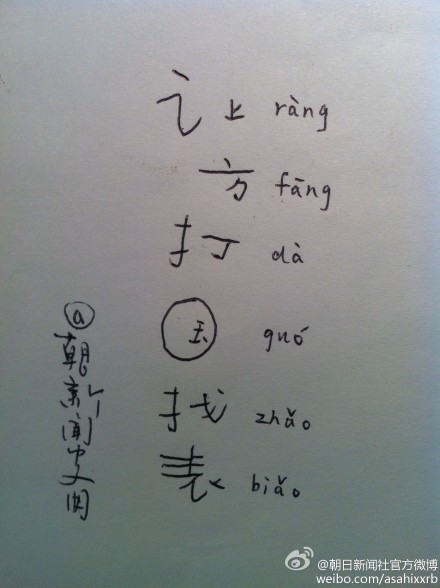 让 ràng
方 fāng
打 dà
国 guó
找 zhǎo
表 biǎo
@朝新闻中文网
@朝日新闻社官方微博
weibo.com/asahixxrb